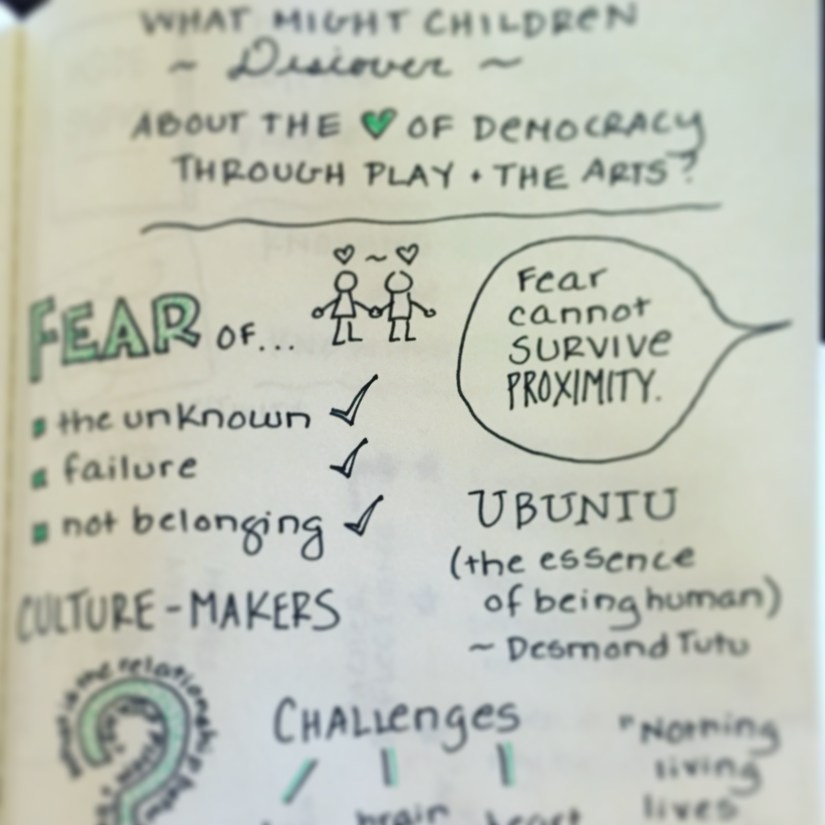 WHAT MIGHT CHILDREN
~ Discover ~
ABOUT THE ♥ OF DEMOCRACY
THROUGH PLAY + THE ARTS?
FEAR OF...
▪ the unknown ✓
▪ failure ✓
▪ not belonging ✓
Fear
cannot
SURVIVE
PROXIMITY.
UBUNTU
(the essence
of being human)
~ Desmond Tutu
CULTURE-MAKERS
what is the relationship
CHALLenges
brain heart
"Nothing
living
lives